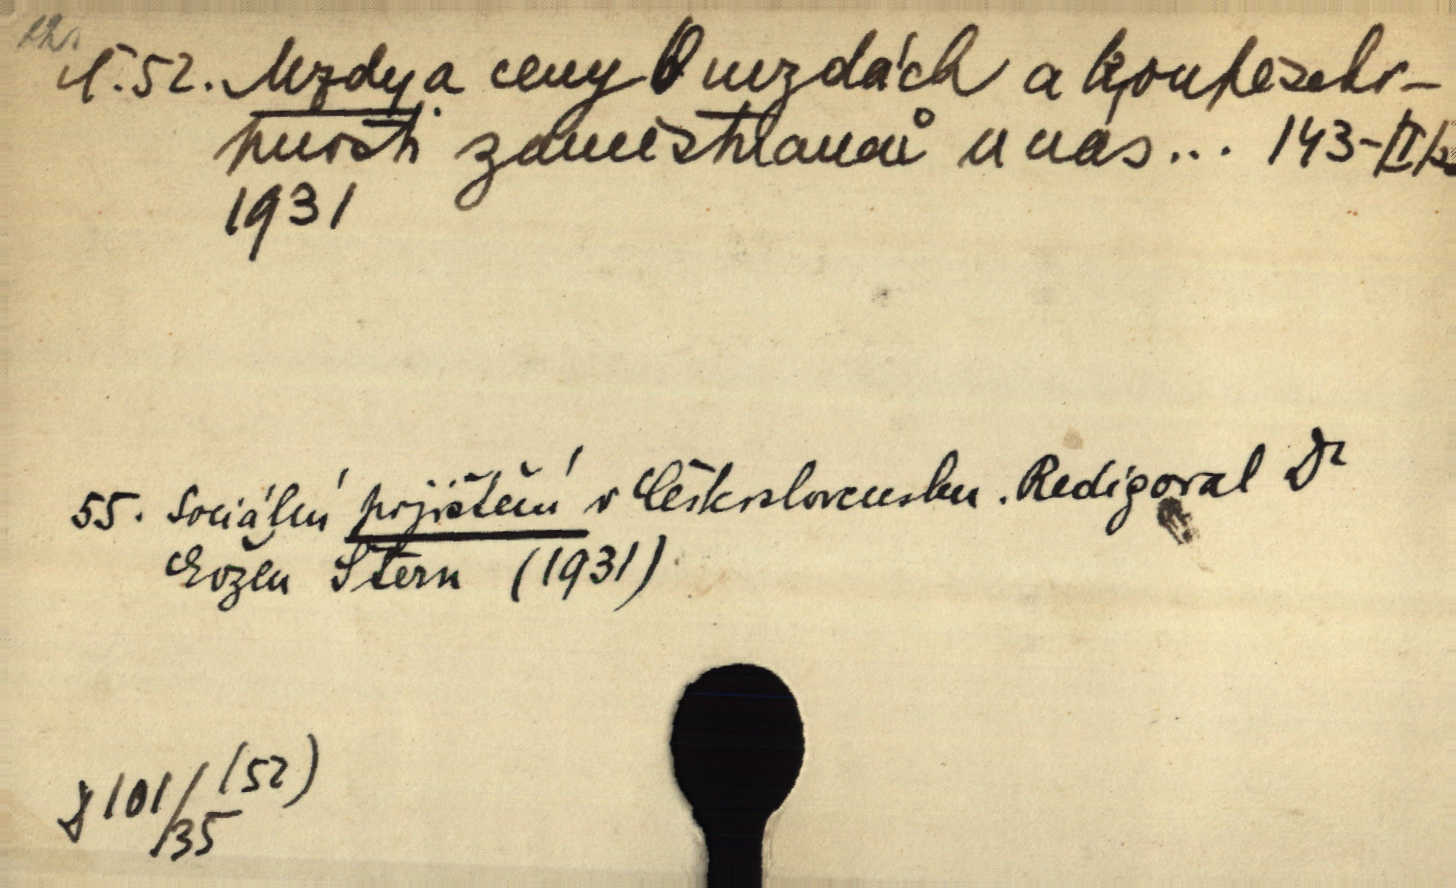 č.52. Mzdy a ceny O mzdách a konkurenční
schopnosti zaměstnanců u nás... 143-
1931
55. Sociální pojištění v Československu. Redigoval Dr
Evžen Štern (1931)
J 101/(52)
/35